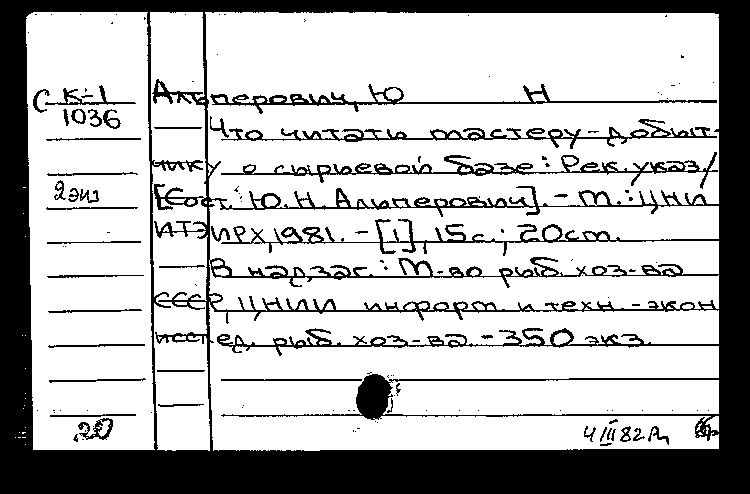 С К-1
1036
2 экз
20
Альперович, Ю Н
Что читать мастеру-добыт-
чику о сырьевой базе: Рек. указ/
[Сост. Ю. Н. Альперович]. - М.: ЦНИ
ИТЭИРХ, 1981. - [1], 15 с.; 20 см.
В надзаг.: М-во рыб. хоз-ва
СССР, ЦНИИ информ. и техн.-экон
исслед. рыб. хоз-ва. - 350 экз.
4 III 82